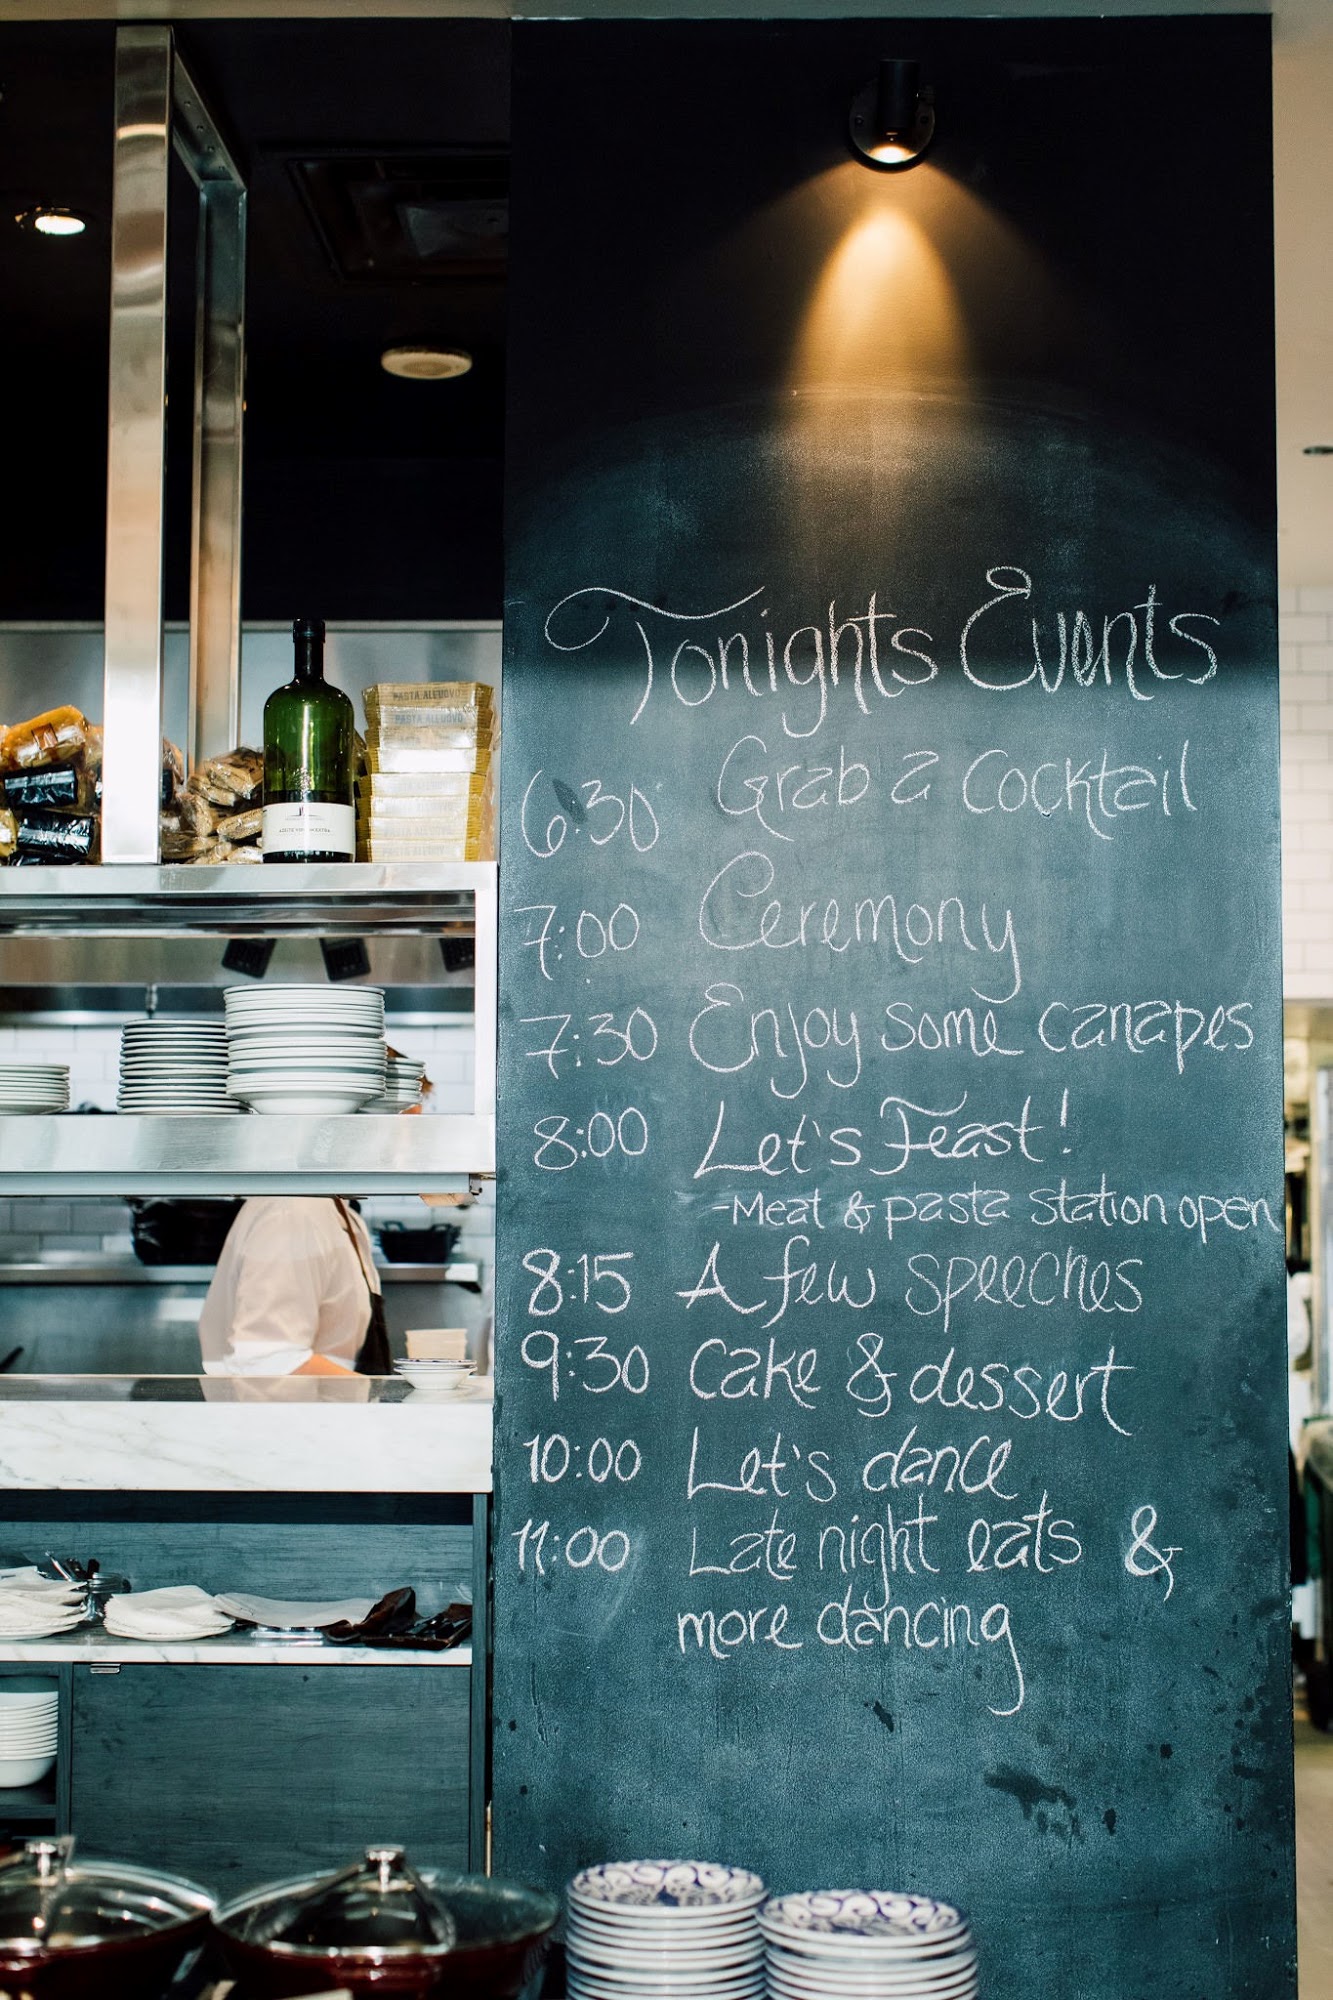 Tonights Events
6:30 Grab a Cocktail
7:00 Ceremony
7:30 Enjoy some canapes
8:00 Let's Feast!
-Meat & pasta station open
8:15 A few speeches
9:30 Cake & dessert
10:00 Let's dance
11:00 Late night eats &
more dancing
PASTA ALL'UOVO
PASTA ALL'UOVO